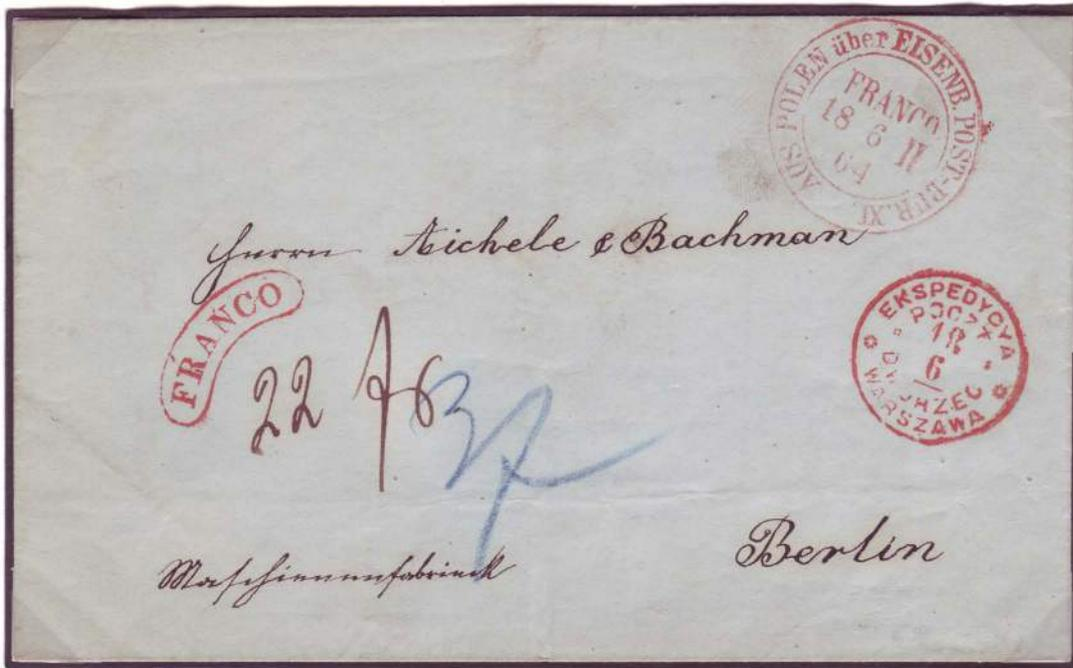 AUS POLEN über EISENB. POST-BUR. XI.
FRANCO
18 6 II
64
Herrn Aichele & Bachman
FRANCO
EKSPEDYCYA
POCZT
18
6
DWORZEC
WARSZAWA
22
37
Berlin
Maschinenfabrick